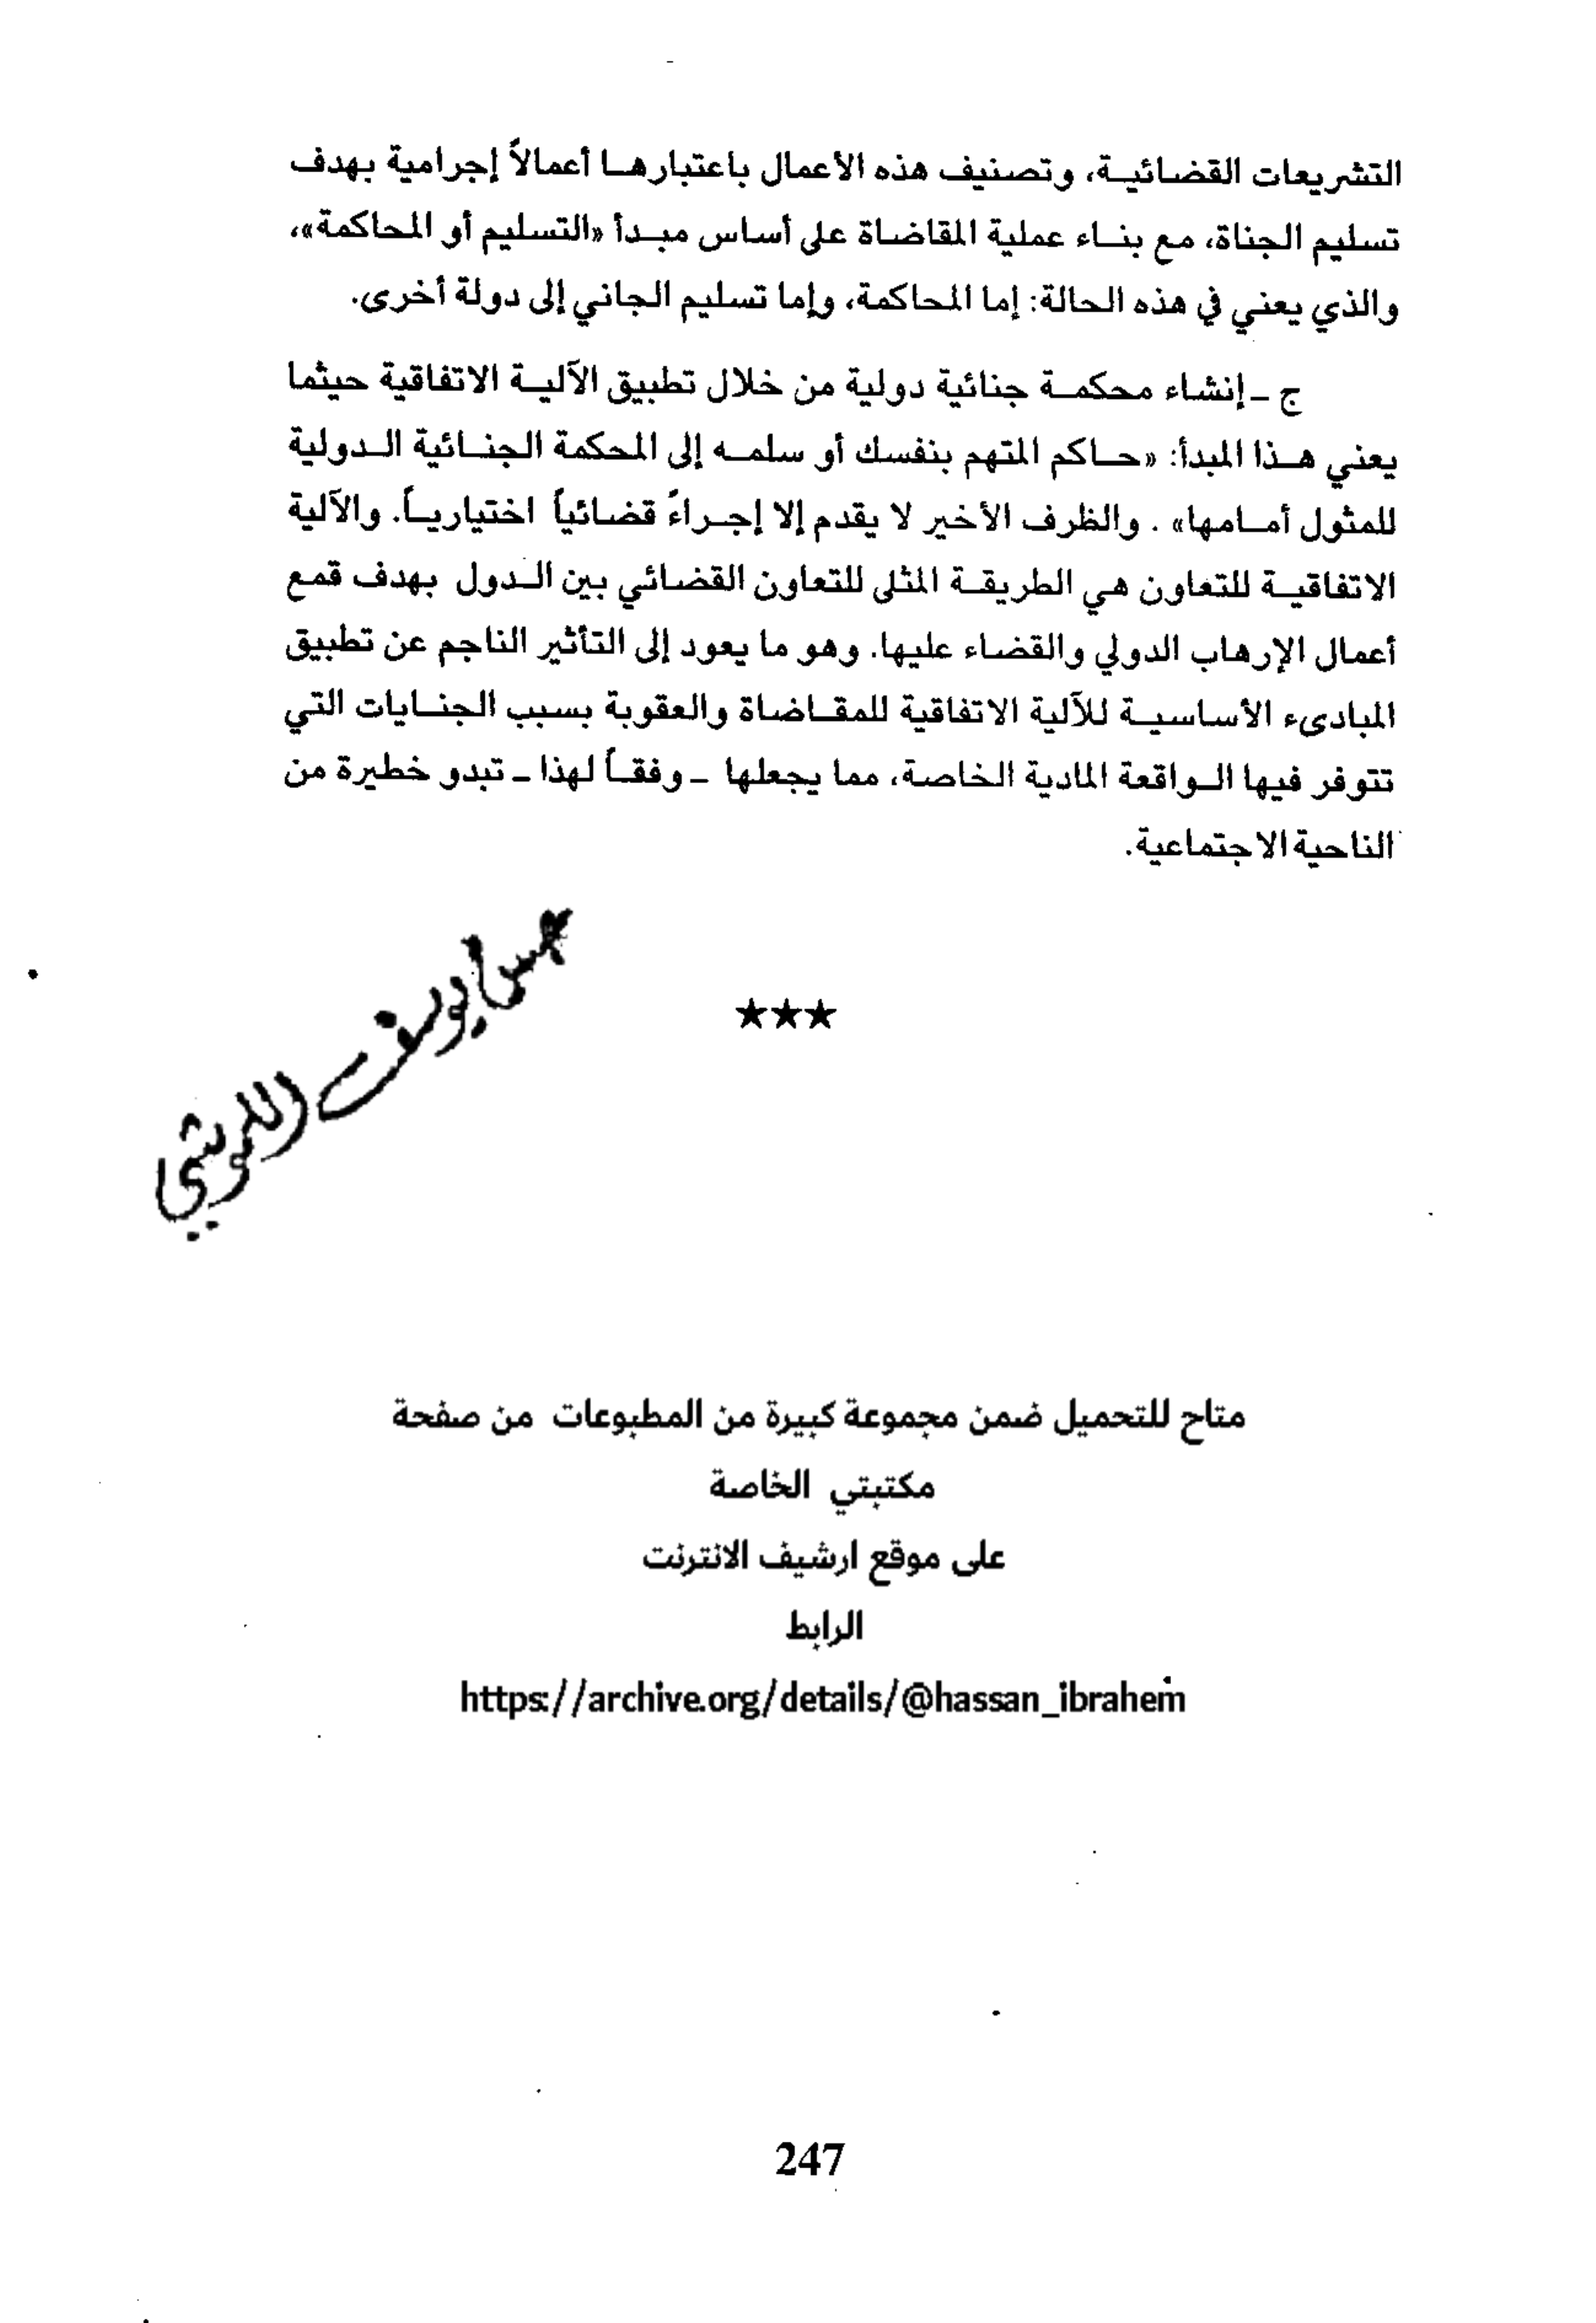 التشريعات القضائية، وتصنيف هذه الأعمال باعتبارها أعمالاً إجرامية بهدف
تسليم الجناة، مع بناء عملية المقاضاة على أساس مبدأ «التسليم أو المحاكمة»،
والذي يعني في هذه الحالة: إما المحاكمة، وإما تسليم الجاني إلى دولة أخرى.
ج - إنشاء محكمة جنائية دولية من خلال تطبيق الآلية الاتفاقية حيثما
يعني هذا المبدأ: «حاكم المتهم بنفسك أو سلمه إلى المحكمة الجنائية الدولية
للمثول أمامها» . والظرف الأخير لا يقدم إلا إجراءً قضائياً اختيارياً. والآلية
الاتفاقية للتعاون هي الطريقة المثلى للتعاون القضائي بين الدول بهدف قمع
أعمال الإرهاب الدولي والقضاء عليها. وهو ما يعود إلى التأثير الناجم عن تطبيق
المبادىء الأساسية للآلية الاتفاقية للمقاضاة والعقوبة بسبب الجنايات التي
تتوفر فيها الواقعة المادية الخاصة، مما يجعلها - وفقاً لهذا - تبدو خطيرة من
الناحية الاجتماعية.
★★★
يوسف
متاح للتحميل ضمن مجموعة كبيرة من المطبوعات من صفحة
مكتبتي الخاصة
على موقع ارشيف الانترنت
الرابط
https://archive.org/details/@hassan_ibrahem
247